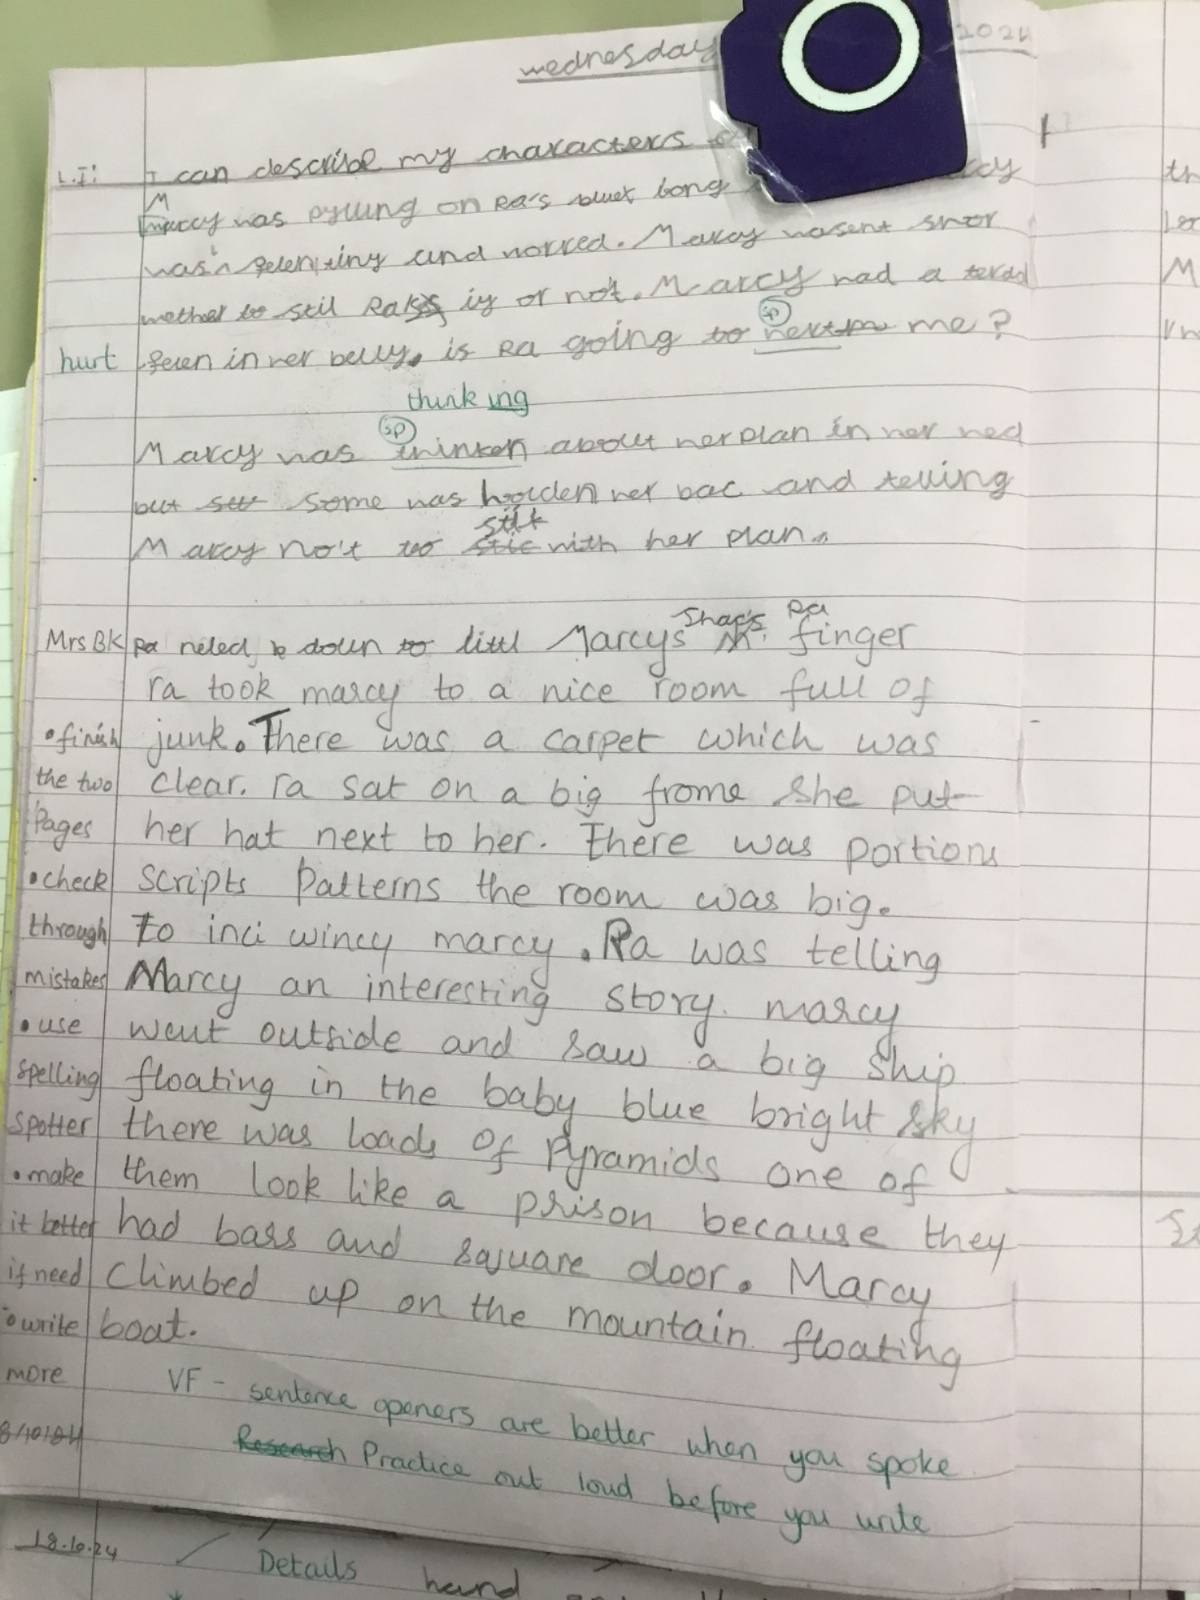 wednesday 2024
L.I: I can describe my characters
M
marcy was pylling on Ra's bong
was and worred. Marcy wasent
to stil or not. Marcy had a
sp
hurt in her belly. is Ra going to me?
thinking
sp
Marcy was thinken about her plan in her hed
but some was holden her bac and telling
Marcy no't to with her plan.
Ra
Mrs BK Ra neled down to littl Marcys finger
ra took marcy to a nice room full of
• finish junk. There was a carpet which was
the two clear. ra sat on a big frome she put
Pages her hat next to her. There was portions
• check scripts Patterns the room was big.
through To inci wincy marcy. Ra was telling
mistakes Marcy an interesting story. marcy
• use went outside and saw a big ship
spelling floating in the baby blue bright sky
spotter there was loads of Pyramids one of
• make them look like a prison because they
it better had bars and square door. Marcy
if need climbed up on the mountain floating
• write boat.
more
VF - sentence openers are better when you spoke
Research Practice out loud before you write
18.10.24
Details hand